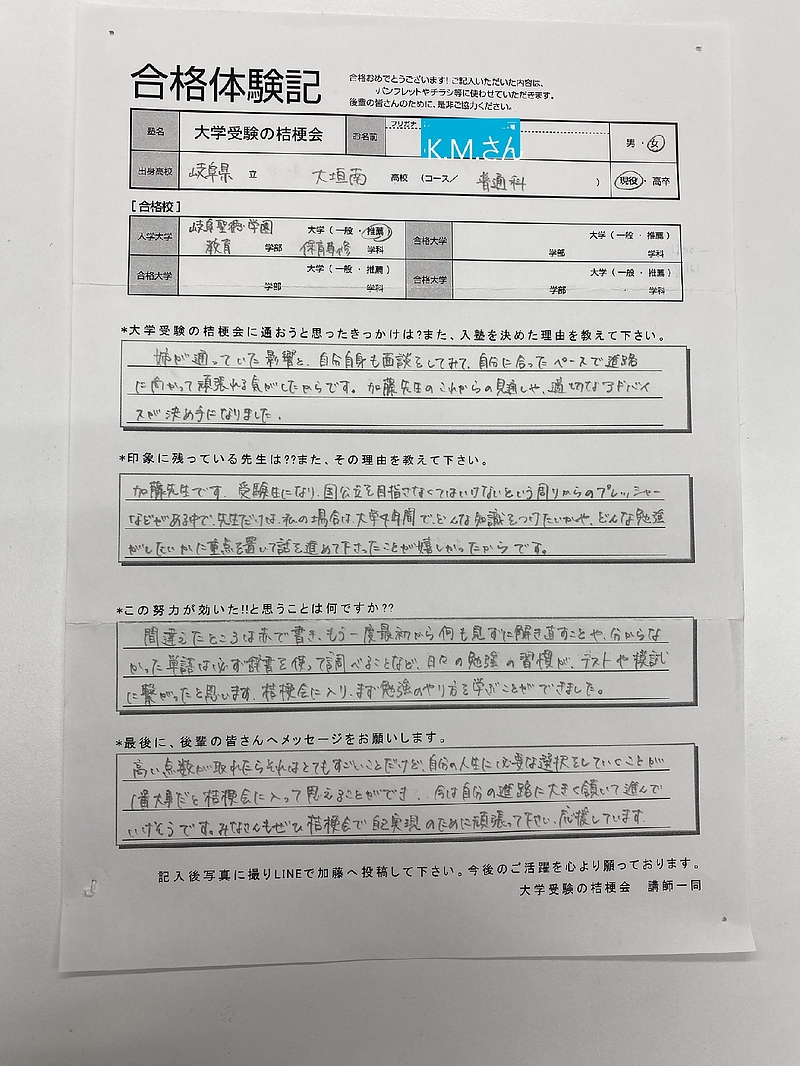 合格体験記
合格おめでとうございます!ご記入いただいた内容は、
パンフレットやチラシ等に使わせていただきます。
後輩の皆さんのために、是非ご協力ください。
塾名 大学受験の桔梗会 お名前 フリガナ K.M.さん 男・女
出身高校 岐阜県 立 大垣南 高校 (コース/ 普通科 ) 現役・高卒
[合格校]
入学大学 岐阜聖徳学園 大学(一般・推薦) 合格大学 大学(一般・推薦)
教育 学部 保育専修 学科 学部 学科
合格大学 大学(一般・推薦) 合格大学 大学(一般・推薦)
学部 学科 学部 学科
*大学受験の桔梗会に通おうと思ったきっかけは?また、入塾を決めた理由を教えて下さい。
姉が通っていた影響と、自分自身も面談をしてみて、自分に合ったペースで進路
に向かって頑張れる気がしたからです。加藤先生のこれからの見通しや、適切なアドバイ
スが決め手になりました。
*印象に残っている先生は??また、その理由を教えて下さい。
加藤先生です。受験生になり、国公立を目指さなくてはいけないという周りからのプレッシャー
などがある中で、先生だけは、私の場合は、大学4年間で、どんな知識をつけたいかや、どんな勉強
がしたいかに重点を置いて話を進めて下さったことが嬉しかったからです。
*この努力が効いた!!と思うことは何ですか??
間違えたところは赤で書き、もう一度最初から何も見ずに解き直すことや、分からな
かった単語は必ず辞書を使って調べることなど、日々の勉強の習慣が、テストや模試
に繋がったと思います。桔梗会に入り、まず勉強のやり方を学ぶことができました。
*最後に、後輩の皆さんへメッセージをお願いします。
高い点数が取れたらそれはとてもすごいことだけど、自分の人生に必要な選択をしていくことが
1番大事だと桔梗会に入って思えることができ、今は自分の進路に大きく頷いて進んで
いけそうです。みなさんもぜひ桔梗会で自己実現のために頑張って下さい。応援しています。
記入後写真に撮りLINEで加藤へ投稿して下さい。今後のご活躍を心より願っております。
大学受験の桔梗会 講師一同